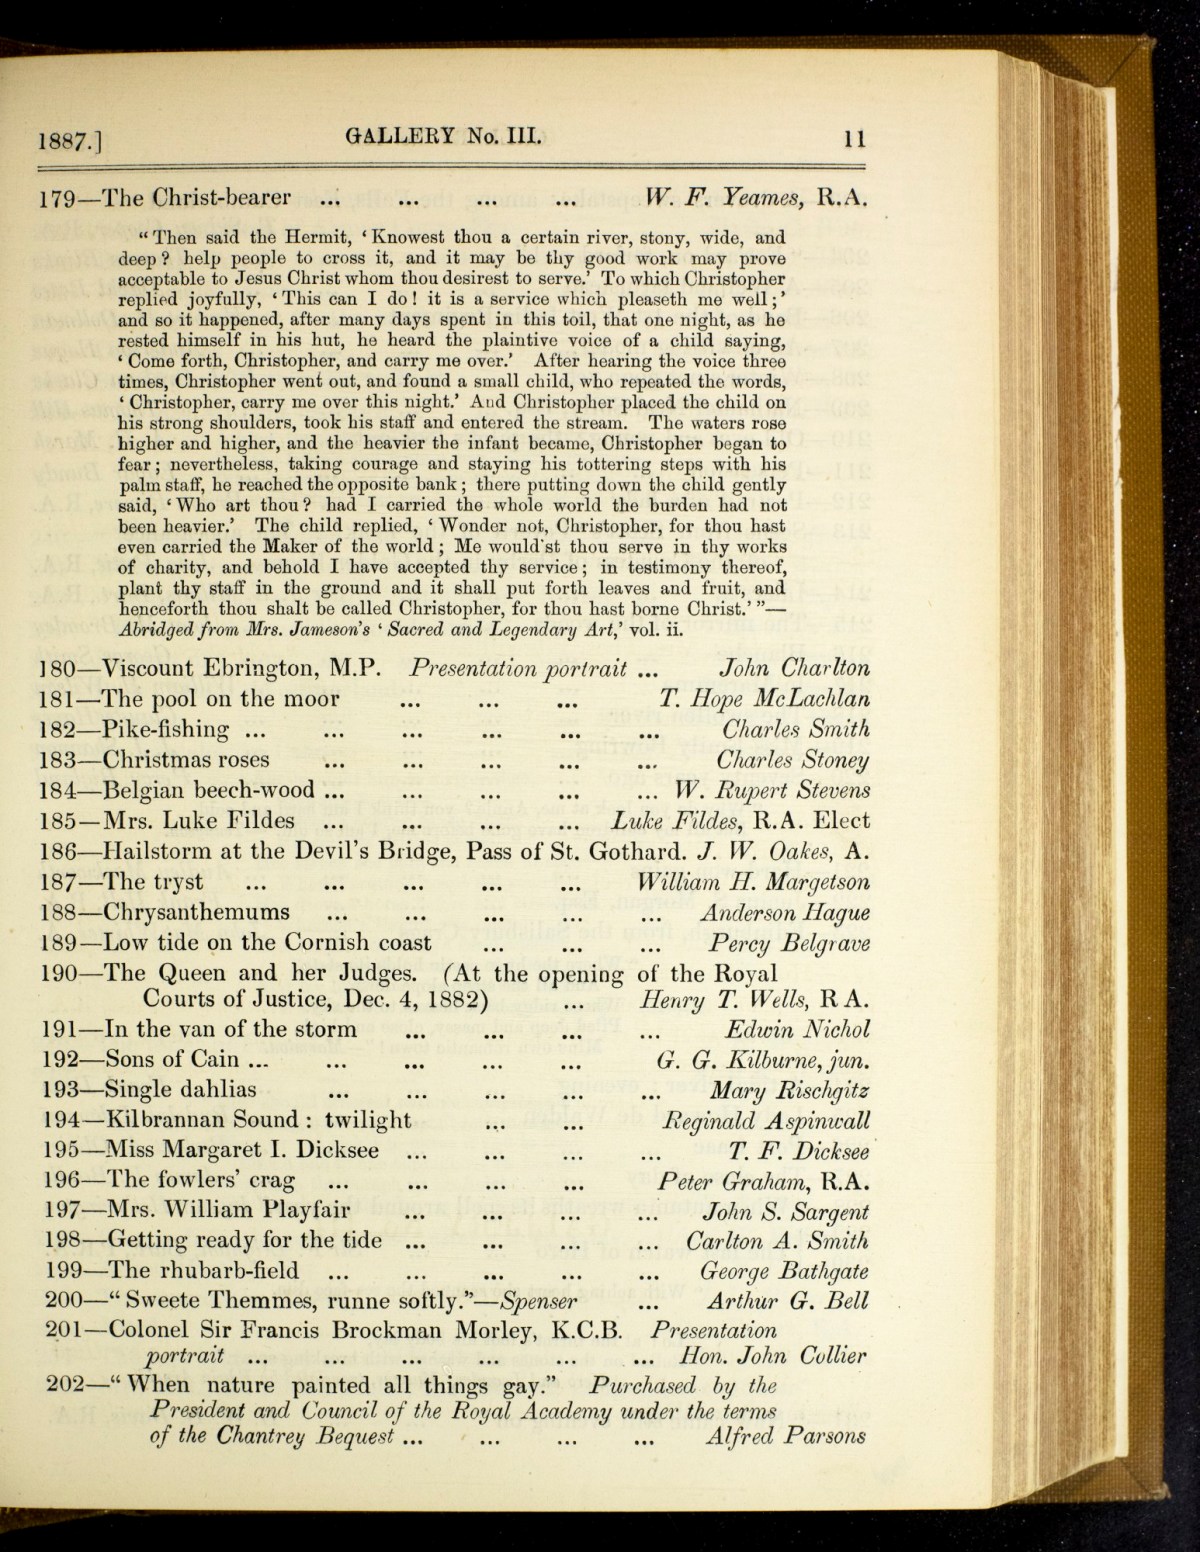 1887.] GALLERY No. III. 11
179—The Christ-bearer ... ... ... ... W. F. Yeames, R.A.
“ Then said the Hermit, ‘ Knowest thou a certain river, stony, wide, and
deep ? help people to cross it, and it may be thy good work may prove
acceptable to Jesus Christ whom thou desirest to serve.’ To which Christopher
replied joyfully, ‘ This can I do ! it is a service which pleaseth me well ; ’
and so it happened, after many days spent in this toil, that one night, as he
rested himself in his hut, he heard the plaintive voice of a child saying,
‘ Come forth, Christopher, and carry me over.’ After hearing the voice three
times, Christopher went out, and found a small child, who repeated the words,
‘ Christopher, carry me over this night.’ And Christopher placed the child on
his strong shoulders, took his staff and entered the stream. The waters rose
higher and higher, and the heavier the infant became, Christopher began to
fear ; nevertheless, taking courage and staying his tottering steps with his
palm staff, he reached the opposite bank ; there putting down the child gently
said, ‘ Who art thou ? had I carried the whole world the burden had not
been heavier.’ The child replied, ‘ Wonder not, Christopher, for thou hast
even carried the Maker of the world ; Me would'st thou serve in thy works
of charity, and behold I have accepted thy service ; in testimony thereof,
plant thy staff in the ground and it shall put forth leaves and fruit, and
henceforth thou shalt be called Christopher, for thou hast borne Christ.’ ”—
Abridged from Mrs. Jameson's ‘ Sacred and Legendary Art,’ vol. ii.
180—Viscount Ebrington, M.P. Presentation portrait ... John Charlton
181—The pool on the moor ... ... ... T. Hope McLachlan
182—Pike-fishing ... ... ... ... ... ... Charles Smith
183—Christmas roses ... ... ... ... ... Charles Stoney
184—Belgian beech-wood ... ... ... ... ... W. Rupert Stevens
185—Mrs. Luke Fildes ... ... ... ... Luke Fildes, R.A. Elect
186—Hailstorm at the Devil's Bridge, Pass of St. Gothard. J. W. Oakes, A.
187—The tryst ... ... ... ... ... William H. Margetson
188—Chrysanthemums ... ... ... ... ... Anderson Hague
189—Low tide on the Cornish coast ... ... ... Percy Belgrave
190—The Queen and her Judges. (At the opening of the Royal
Courts of Justice, Dec. 4, 1882) ... Henry T. Wells, R A.
191—In the van of the storm ... ... ... ... Edwin Nichol
192—Sons of Cain ... ... ... ... ... G. G. Kilburne, jun.
193—Single dahlias ... ... ... ... ... Mary Rischgitz
194—Kilbrannan Sound : twilight ... ... Reginald Aspinwall
195—Miss Margaret I. Dicksee ... ... ... ... T. F. Dicksee
196—The fowlers’ crag ... ... ... ... Peter Graham, R.A.
197—Mrs. William Playfair ... ... ... ... John S. Sargent
198—Getting ready for the tide ... ... ... ... Carlton A. Smith
199—The rhubarb-field ... ... ... ... ... George Bathgate
200—“ Sweete Themmes, runne softly.”—Spenser ... Arthur G. Bell
201—Colonel Sir Francis Brockman Morley, K.C.B. Presentation
portrait ... ... ... ... ... ... Hon. John Collier
202—“ When nature painted all things gay.” Purchased by the
President and Council of the Royal Academy under the terms
of the Chantrey Bequest ... ... ... ... Alfred Parsons